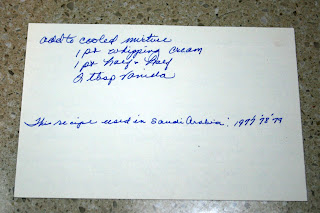 add to cooled mixture
1 pt whipping cream
1 pt half & half
2 tbsp vanilla
This recipe used in Saudi Arabia: 1977 '78 '79